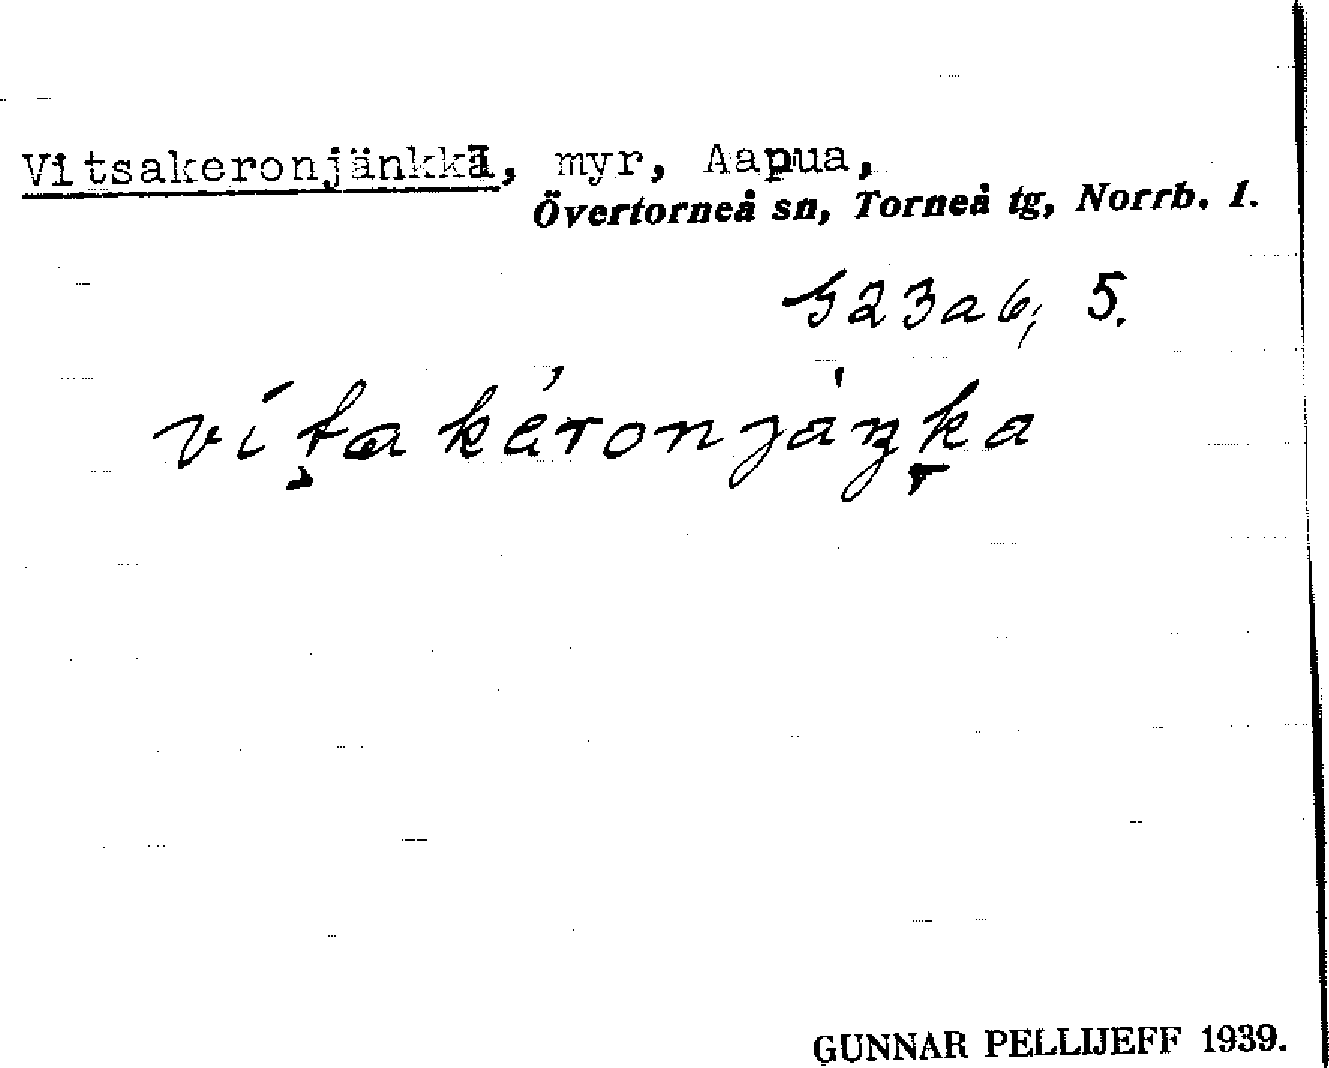 Vitsakeronjänkkä, myr, Aapua,
Övertorneå sn, Torneå tg, Norrb. l.
523ab; 5.
GUNNAR PELLIJEFF 1939.